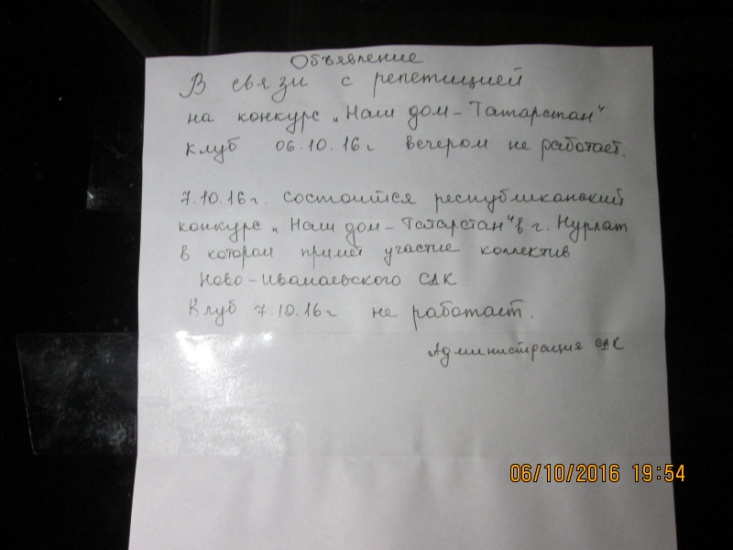 Объявление
В связи с репетицией
на конкурс „Наш дом - Татарстан"
клуб 06.10.16 г вечером не работает.
7.10.16 г. состоится республиканский
конкурс „Наш дом - Татарстан" в г. Нурлат
в котором примет участие коллектив
Ново-Иванаевского СДК.
Клуб 7.10.16 г не работает.
Администрация СДК
06/10/2016 19:54